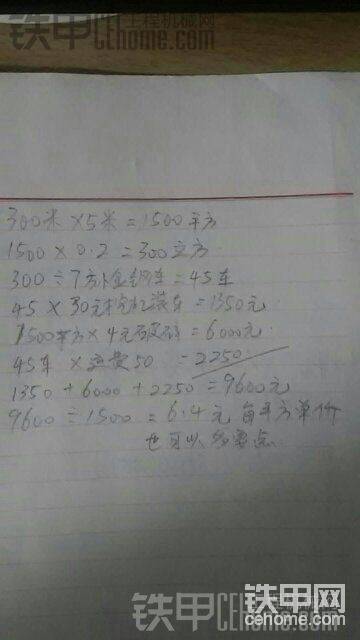 铁甲 工程机械网
CEhome.com
300米×5米=1500平方
1500×0.2=300立方
300÷7方 车=45车
45×30元挖机装车=1350元
1500平方×4元破碎=6000元
45车×运费50=2250
1350+6000+2250=9600元
9600÷1500=6.4元每平方单价
也可以多要点
铁甲网
cehome.com
铁甲 工程机械网
CEhome.com